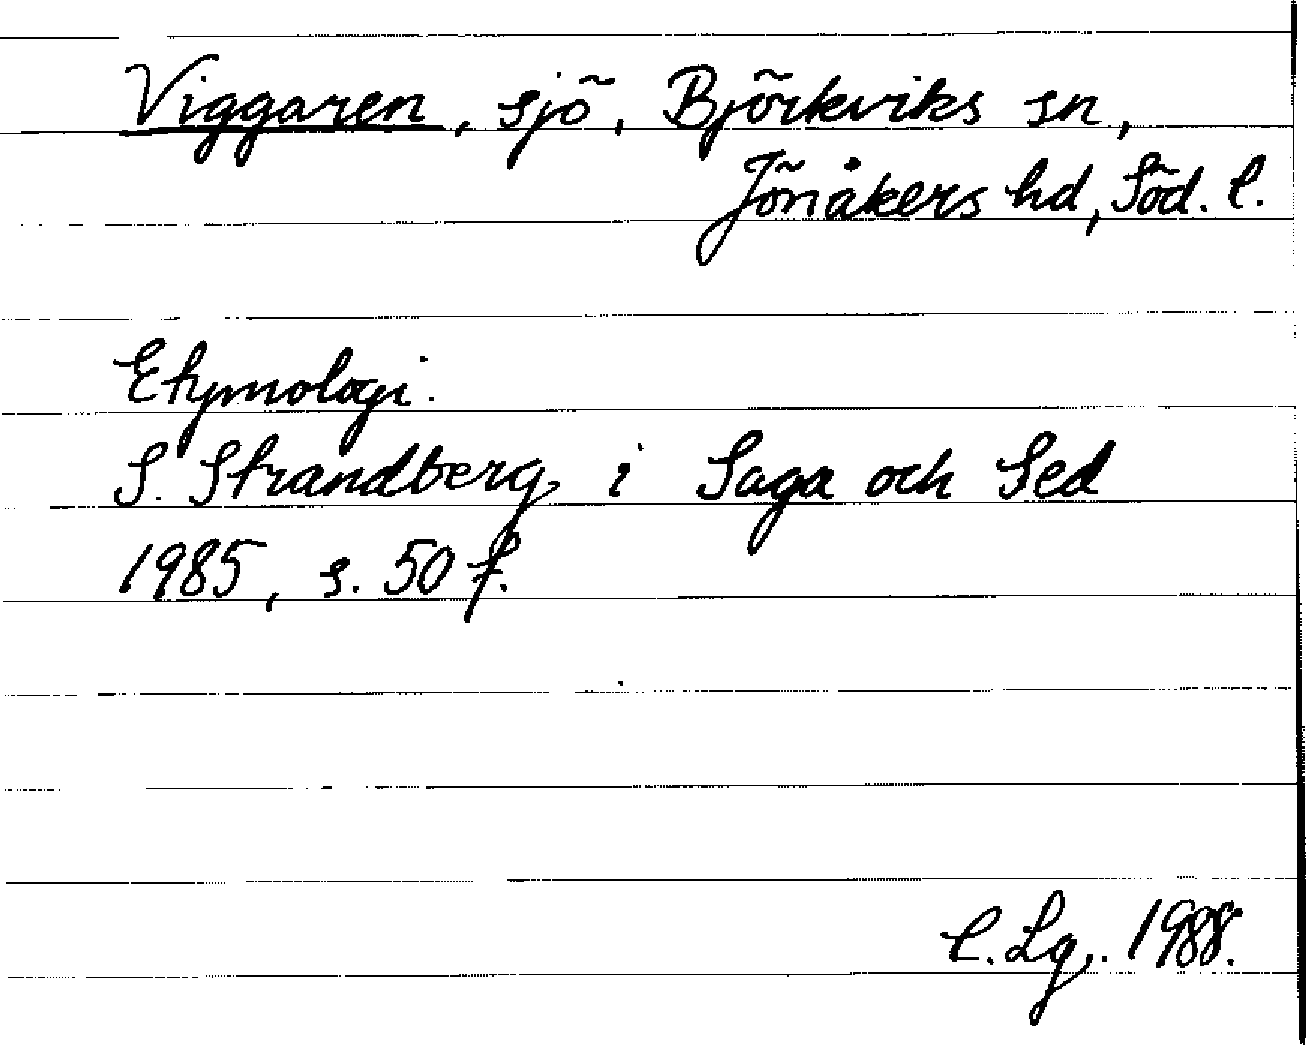 Viggaren, sjö, Björkviks sn,
Jönåkers hd, Söd. l.
Etymologi.
S. Strandberg i Saga och Sed
1985, s. 50 f.
C. Lg. 1988.